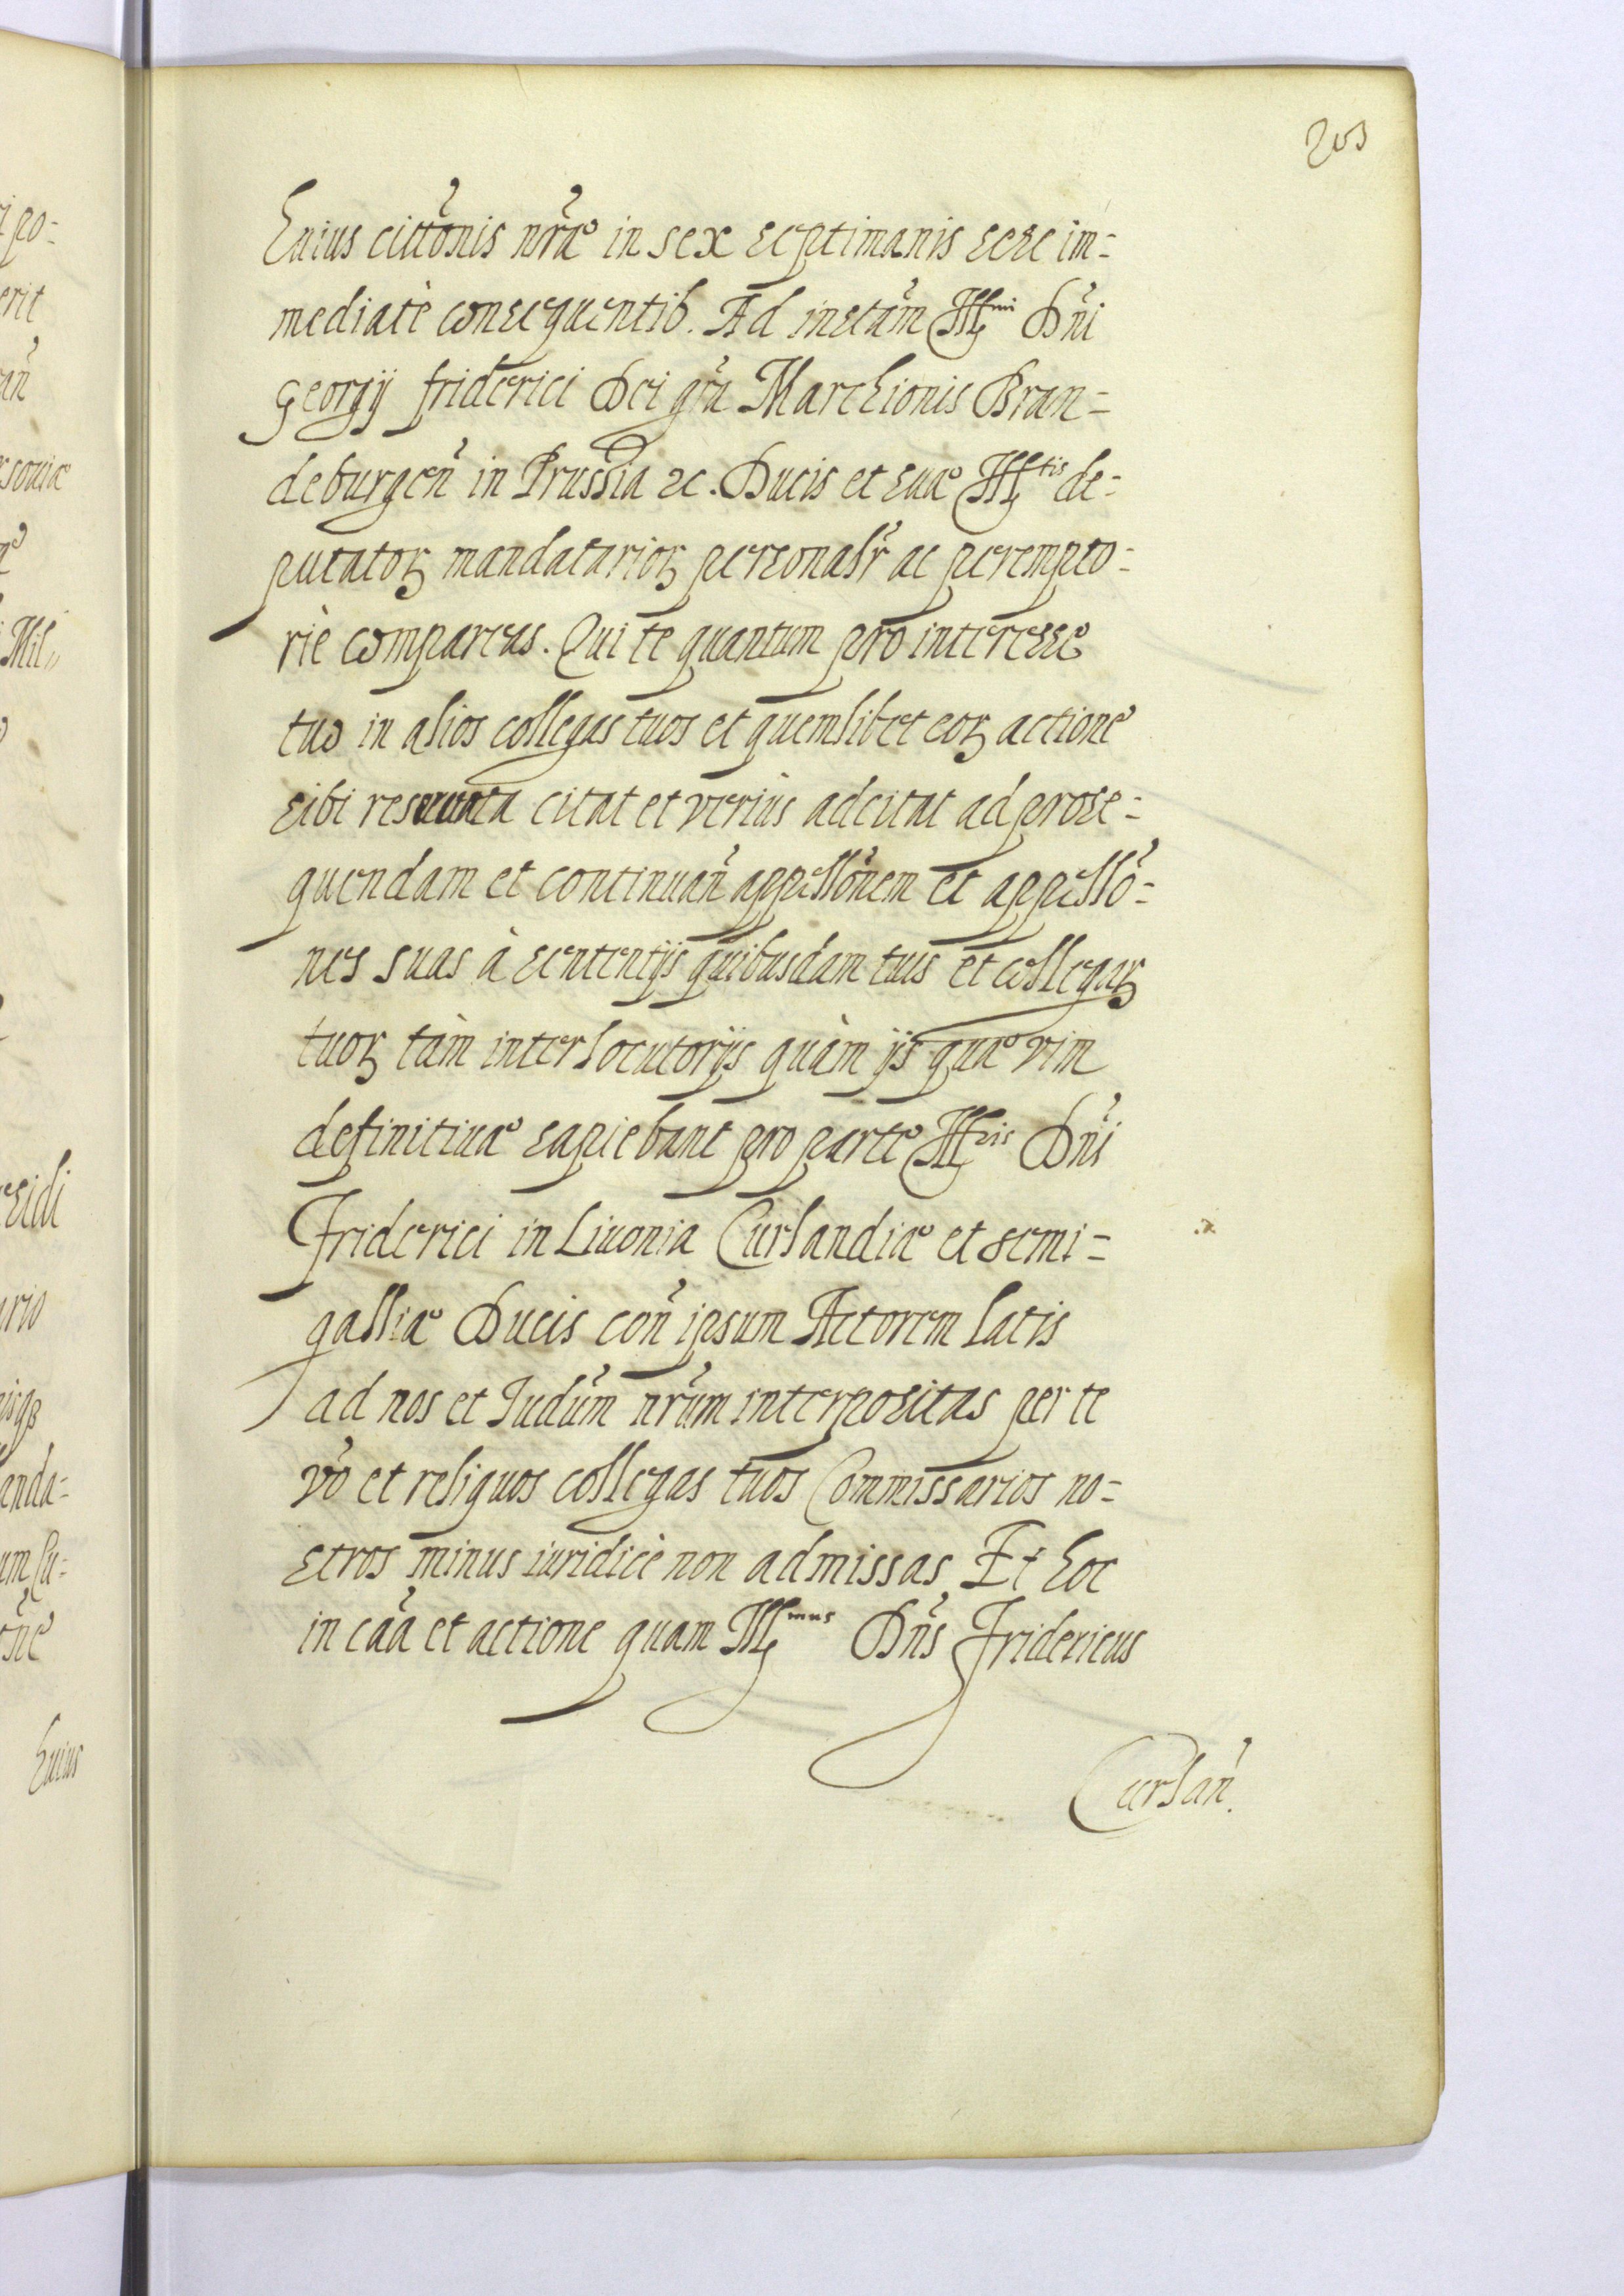 203
huius cittõnis nrãe in sex septimanis sese im=
mediatè consequentib. Ad instãm Ill<sup>mi</sup> Dñi
Georgij friderici Dei grã Marchionis Bran=
deburgeñ in Prussia ac. Ducis et suae Ill<sup>tis</sup> de=
putatoꝝ mandatarioꝝ personalr̃ ac perempto=
riè compareas. Qui te quantum pro interesse
tuo in alios collegas tuos et quemlibet eoꝝ actione
sibi citat et veriùs adcitat ad prose=
quendam et continuañ appellõnem et appellõ=
nes suas à sententijs quibusdam tuis et collegaꝝ
tuoꝝ tàm interlocutorijs quàm ijs quae vim
definitiuae sapiebant pro parte Ill<sup>ris</sup> Dñi
Friderici in Liuonia Curlandiae et Semi=
galliae Ducis coñ ipsum Actorem latis
ad nos et Iudũm nrũm interpositas per te
võ et reliquos collegas tuos Commissarios no=
stros minus iuridicè non admissas. Et hoc
in cãa et actione quam Ill<sup>mus</sup> Dñs Fridericus
Curlañ.
po=
erit
añ
souiae
Mil,,
sidi
ario
anda=
um Cu=
huius